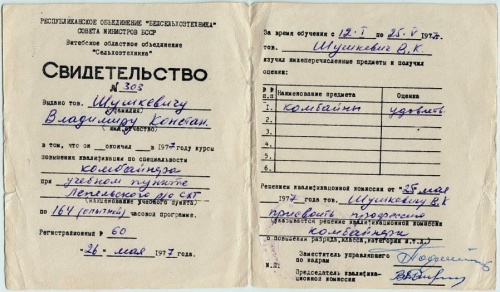 РЕСПУБЛИКАНСКОЕ ОБЪЕДИНЕНИЕ "БЕЛСЕЛЬХОЗТЕХНИКА"
СОВЕТА МИНИСТРОВ БССР
Витебское областное объединение
"Сельхозтехника"
СВИДЕТЕЛЬСТВО
№ 303
Выдано тов. Шушкевичу
(фамилия)
Владимиру Констан.
(имя, отчество)
в том, что он окончил в 1977 году курсы
повышения квалификации по специальности
комбайнера
при учебном пункте
Лепельского
(наименование учебного пункта)
по 164 часовой программе.
Регистрационный № 60
"26" мая 1977 г.
За время обучения с 12.I по 25.V 1977г.
тов. Шушкевич В.К.
изучил нижеперечисленные предметы и получил
оценки:
№№ п.п. Наименование предмета Оценка
1. комбайны удовлетв
2.
3.
4.
5.
6.
Решением квалификационной комиссии от "25 мая
1977 года тов. Шушкевич В.К
присвоить профессию
(указывается решение квалификационной комиссии
комбайнера
о повышении разряда, класса, категории и т.д.)
Заместитель управляющего
по кадрам
М.П.
Председатель квалифика-
ционной комиссии